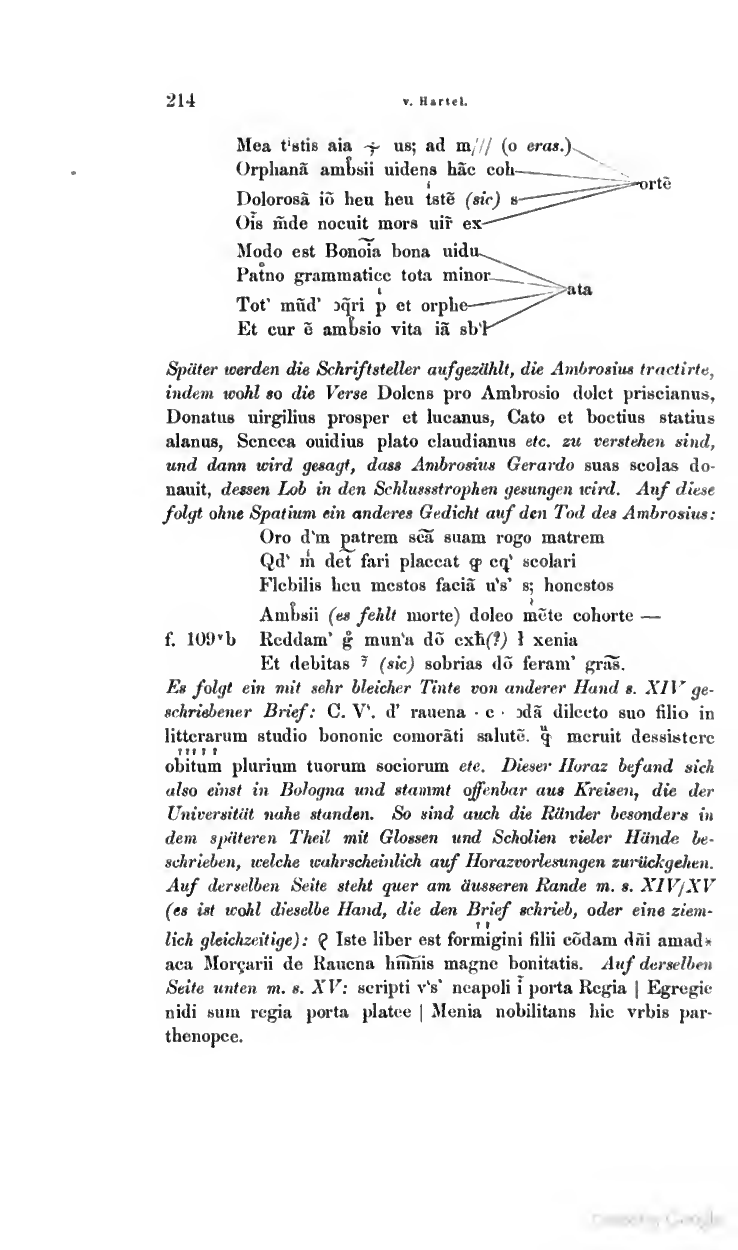 214 v. Hartel.
Mea tⁱstis aia ÷ us; ad m/// (o eras.)
Orphanā ambsii uidens hāc coh
ortē
Dolorosā iō heu heu tstē (sic) s
Oīs m̄de nocuit mors uir̄ ex
Modo est Bonoīa bona uidu
Pat̊no grammatice tota minor
ata
Tot' mūd' ɔq̄ri p et orphe
Et cur ē ambsio vita iā sb'ł
Später werden die Schriftsteller aufgezählt, die Ambrosius tractirte,
indem wohl so die Verse Dolens pro Ambrosio dolet priscianus,
Donatus uirgilius prosper et lucanus, Cato et boctius statius
alanus, Seneca ouidius plato claudianus etc. zu verstehen sind,
und dann wird gesagt, dass Ambrosius Gerardo suas scolas do-
nauit, dessen Lob in den Schlussstrophen gesungen wird. Auf diese
folgt ohne Spatium ein anderes Gedicht auf den Tod des Ambrosius:
Oro d'm patrem scā suam rogo matrem
Qd' m det fari placcat ꝙ eq' scolari
Flebilis heu mestos faciā u's' s; honestos
Ambsii (es fehlt morte) doleo mēte cohorte —
f. 109ᵛb Reddam' g̊ mun'a dō exħ(?) ł xenia
Et debitas ⁊ (sic) sobrias dō feram' grās.
Es folgt ein mit sehr bleicher Tinte von anderer Hand s. XIV ge-
schriebener Brief: C. V'. d' rauena · c · ɔdā dilecto suo filio in
litterarum studio bononie comorāti salutē. q meruit dessistere
obitum plurium tuorum sociorum etc. Dieser Horaz befand sich
also einst in Bologna und stammt offenbar aus Kreisen, die der
Universität nahe standen. So sind auch die Ränder besonders in
dem späteren Theil mit Glossen und Scholien vieler Hände be-
schrieben, welche wahrscheinlich auf Horazvorlesungen zurückgehen.
Auf derselben Seite steht quer am äusseren Rande m. s. XIV/XV
(es ist wohl dieselbe Hand, die den Brief schrieb, oder eine ziem-
lich gleichzeitige): Iste liber est formigini filii cōdam dñi amad*
aca Morçarii de Rauena hm̄nis magne bonitatis. Auf derselben
Seite unten m. s. XV: scripti v's' neapoli ī porta Regia | Egregie
nidi sum regia porta platee | Menia nobilitans hic vrbis par-
thenopee.